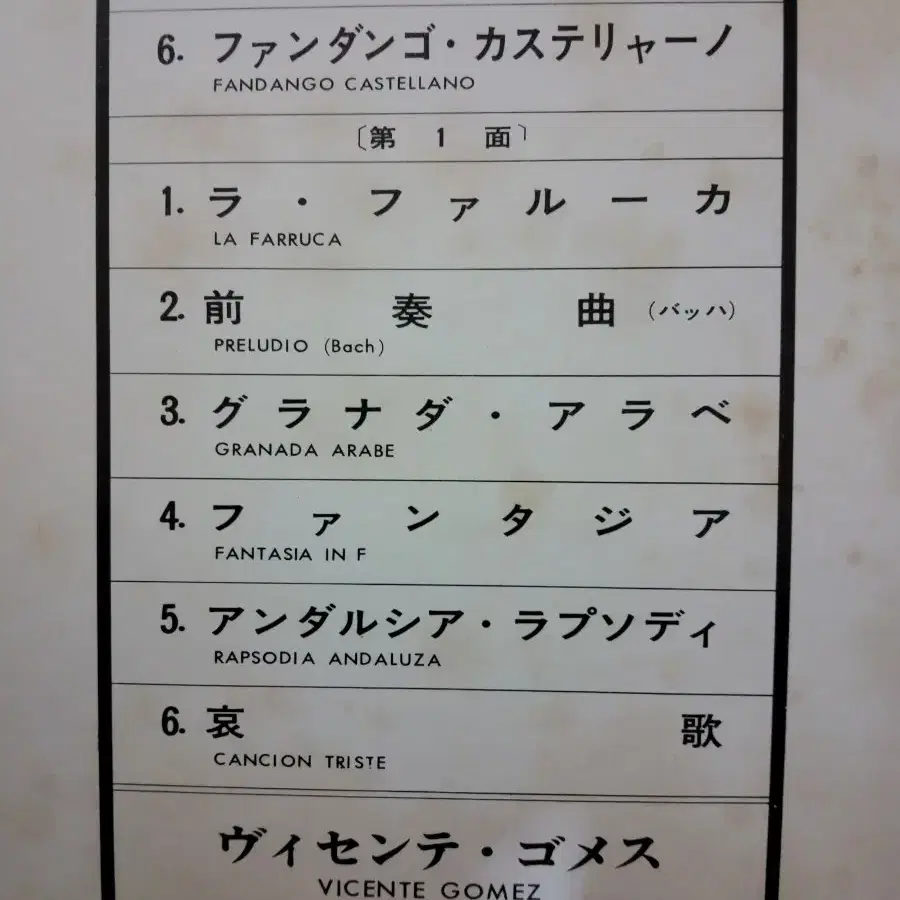 6. ファンダンゴ・カステリャーノ
FANDANGO CASTELLANO
〔第 1 面〕
1. ラ・ファルーカ
LA FARRUCA
2. 前奏曲 (バッハ)
PRELUDIO (Bach)
3. グラナダ・アラベ
GRANADA ARABE
4. ファンタジア
FANTASIA IN F
5. アンダルシア・ラプソディ
RAPSODIA ANDALUZA
6. 哀歌
CANCION TRISTE
ヴィセンテ・ゴメス
VICENTE GOMEZ